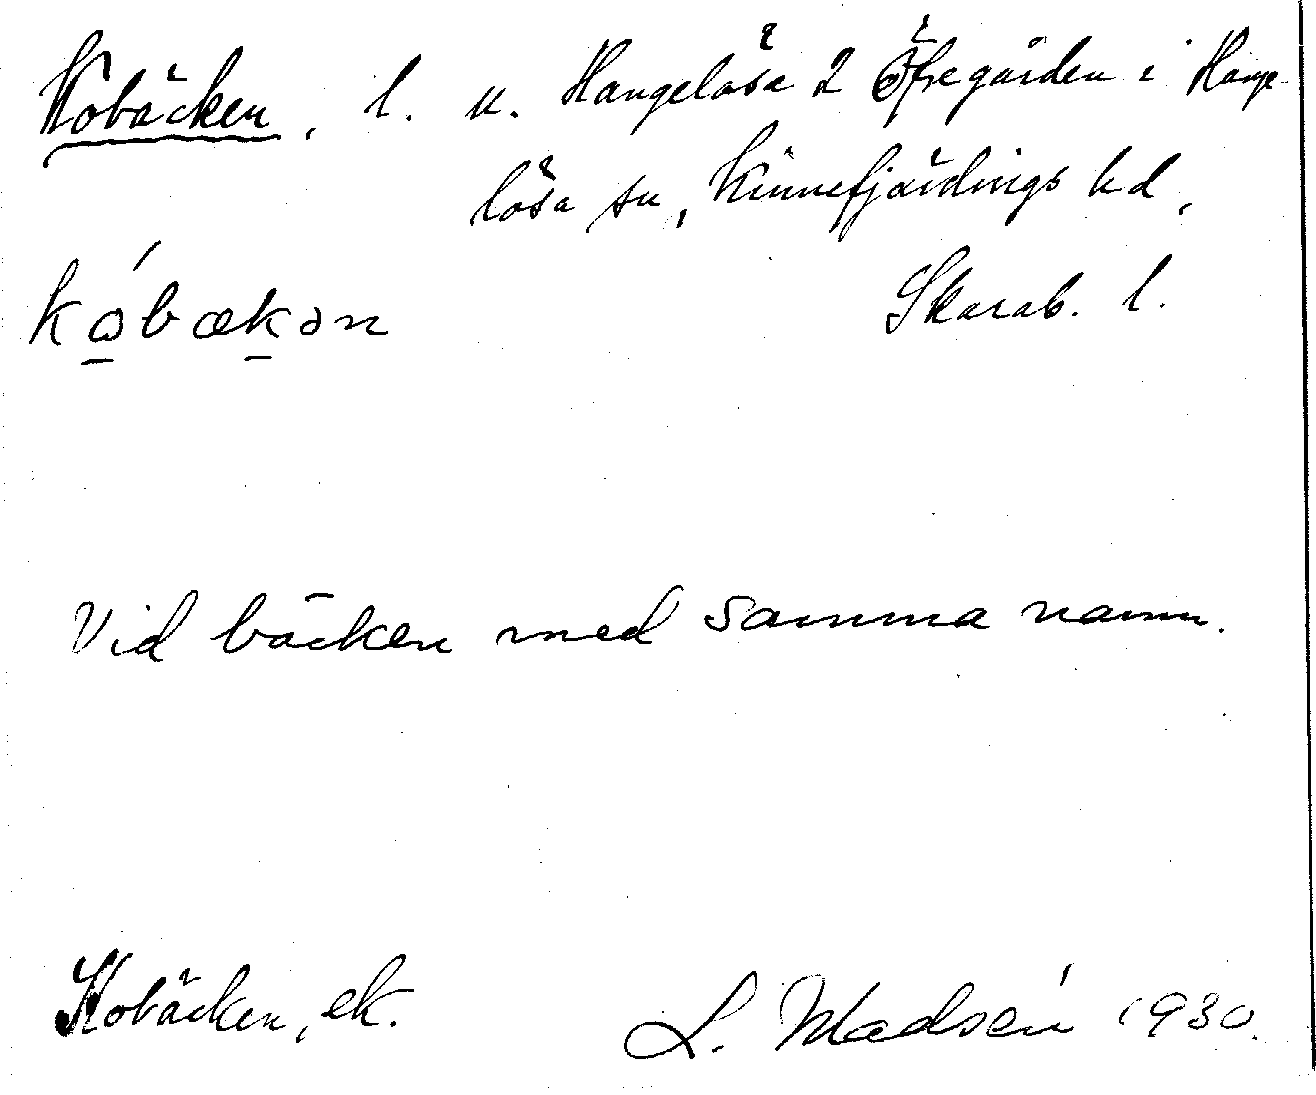 Kobäcken, l. u. Hangelösa 2 Öfregården i Hange-
lösa sn, Kinnefjärdings hd,
Skarab. l.
kóbækən
Vid bäcken med samma namn.
Kobäcken, ek.
L. Madsén 1930.